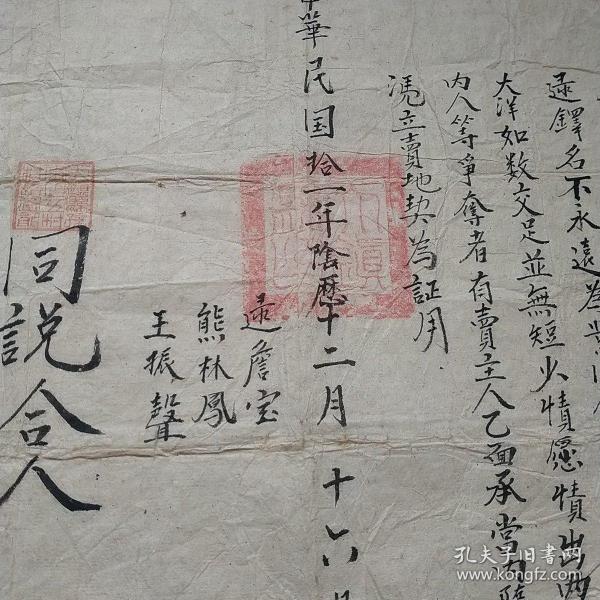 逯鐸名下永遠為業
大洋如数交足並無短少情愿
内人等爭奪者有賣主人乙面承當
凴立賣地契為証用
中華民国拾一年陰歷十二月十六
逯詹宝
熊林鳳
王振聲
同説合人
孔夫子旧书网
www.kongfz.com